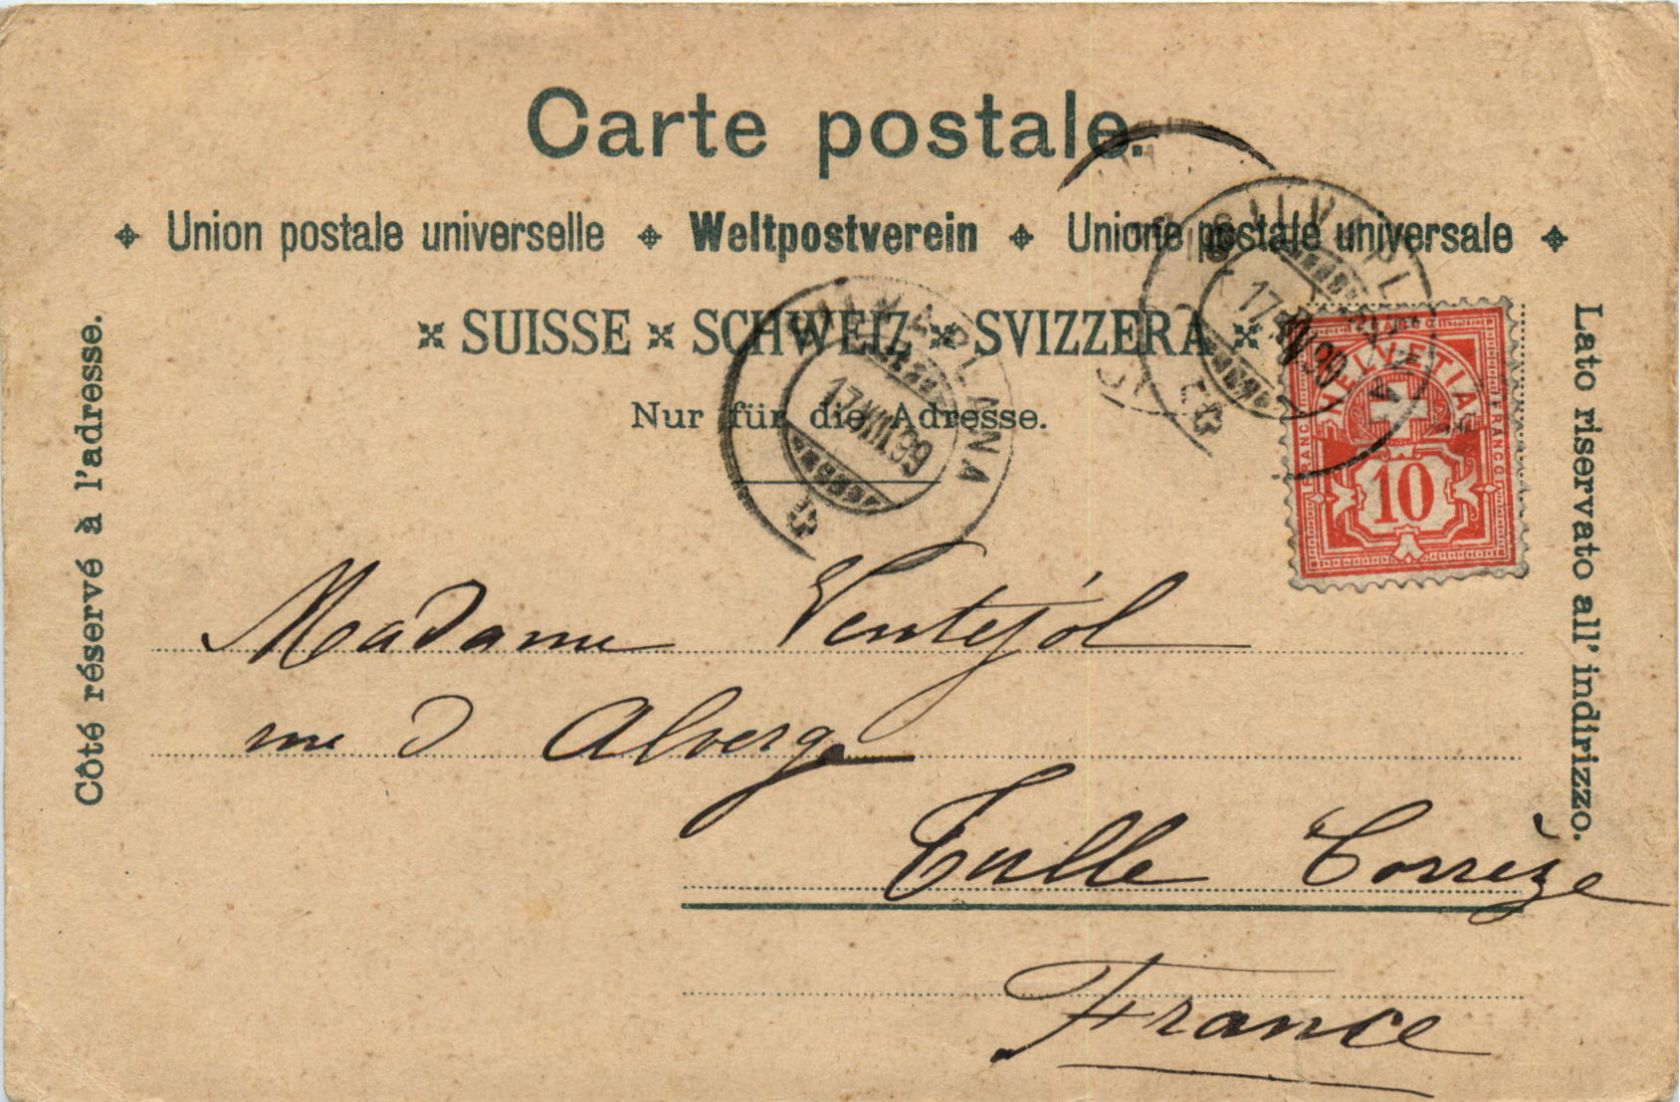 Carte postale.
Union postale universelle Weltpostverein Unione postale universale
SUISSE SCHWEIZ SVIZZERA
Nur für die Adresse.
Côté réservé à l'adresse.
Lato riservato all' indirizzo.
SILVAPLANA
17.VIII.99
SILVAPLANA
17.VIII.99
HELVETIA
FRANCO
FRANCO
10
Madame Ventejol
rue d Alverge
Tulle Corrèze
France